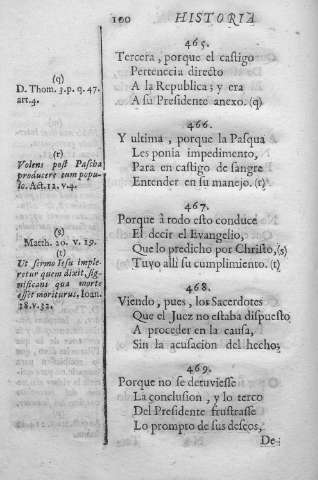 100 HISTORIA
465.
Tercera, porque el castigo
Pertenecia directo
A la Republica; y era
A su Presidente anexo. (q)
466.
Y ultima, porque la Pasqua
Les ponia impedimento,
Para en castigo de sangre
Entender en su manejo. (r)
467.
Porque à todo esto conduce
El decir el Evangelio,
Que lo predicho por Christo, (s)
Tuvo alli su cumplimiento. (t)
468.
Viendo, pues, los Sacerdotes
Que el Juez no estaba dispuesto
A proceder en la causa,
Sin la acusacion del hecho;
469.
Porque no se detuviesse
La conclusion, y lo terco
Del Presidente frustrasse
Lo prompto de sus deseos,
De-
(q)
D. Thom. 3. p. q. 47.
art. 4.
(r)
Volens post Pascha
producere eum popu-
lo. Act. 12. v. 4.
(s)
Matth. 20. v. 19.
(t)
Ut sermo Iesu imple-
retur quem dixit, sig-
nificans qua morte
esset moriturus, Ioan.
18. v. 32.